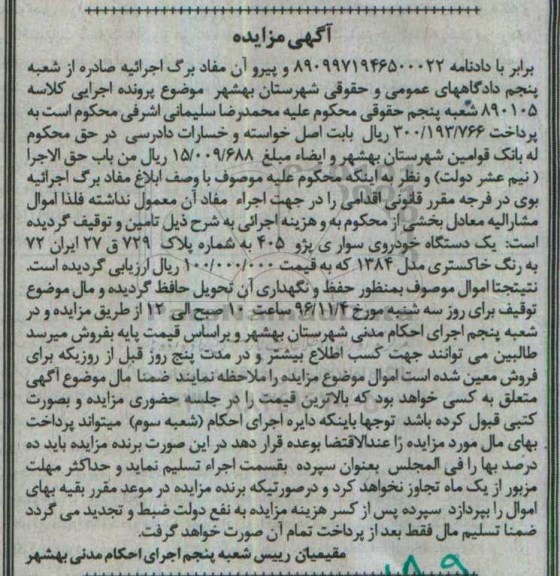 آگهی مزایده
برابر با دادنامه ۸۹۰۹۹۷۱۹۴۶۵۰۰۰۲۲ و پیرو آن مفاد برگ اجرائیه صادره از شعبه
پنجم دادگاههای عمومی و حقوقی شهرستان بهشهر موضوع پرونده اجرایی کلاسه
۸۹۰۱۰۵ شعبه پنجم حقوقی محکوم علیه محمدرضا سلیمانی اشرفی محکوم است به
پرداخت ۳۰۰/۱۹۳/۷۶۶ ریال بابت اصل خواسته و خسارات دادرسی در حق محکوم
له بانک قوامین شهرستان بهشهر و ایضاء مبلغ ۱۵/۰۰۹/۶۸۸ ریال من باب حق الاجرا
( نیم عشر دولت) و نظر به اینکه محکوم علیه موصوف با وصف ابلاغ مفاد برگ اجرائیه
بوی در فرجه مقرر قانونی اقدامی را در جهت اجراء مفاد آن معمول نداشته فلذا اموال
مشارالیه معادل بخشی از محکوم به و هزینه اجرائی به شرح ذیل تامین و توقیف گردیده
است: یک دستگاه خودروی سوار ی پژو ۴۰۵ به شماره پلاک ۷۲۹ ق ۲۷ ایران ۷۲
به رنگ خاکستری مدل ۱۳۸۴ که به قیمت ۱۰۰/۰۰۰/۰۰۰ ریال ارزیابی گردیده است.
نتیجتا اموال موصوف بمنظور حفظ و نگهداری آن تحویل حافظ گردیده و مال موضوع
توقیف برای روز سه شنبه مورخ ۹۶/۱۱/۴ ساعت ۱۰ صبح الی ۱۲ از طریق مزایده و در
شعبه پنجم اجرای احکام مدنی شهرستان بهشهر و براساس قیمت پایه بفروش میرسد
طالبین می توانند جهت کسب اطلاع بیشتر و در مدت پنج روز قبل از روزیکه برای
فروش معین شده است اموال موضوع مزایده را ملاحظه نمایند ضمنا مال موضوع آگهی
متعلق به کسی خواهد بود که بالاترین قیمت را در جلسه حضوری مزایده و بصورت
کتبی قبول کرده باشد توجها باینکه دایره اجرای احکام (شعبه سوم) میتواند پرداخت
بهای مال مورد مزایده را عندالاقتضا بوعده قرار دهد در این صورت برنده مزایده باید ده
درصد بها را فی المجلس بعنوان سپرده بقسمت اجراء تسلیم نماید و حداکثر مهلت
مزبور از یک ماه تجاوز نخواهد کرد و درصورتیکه برنده مزایده در موعد مقرر بقیه بهای
اموال را بپردازد سپرده پس از کسر هزینه مزایده به نفع دولت ضبط و تجدید می گردد
ضمنا تسلیم مال فقط بعد از پرداخت تمام آن صورت خواهد گرفت.
مقیمیان رییس شعبه پنجم اجرای احکام مدنی بهشهر